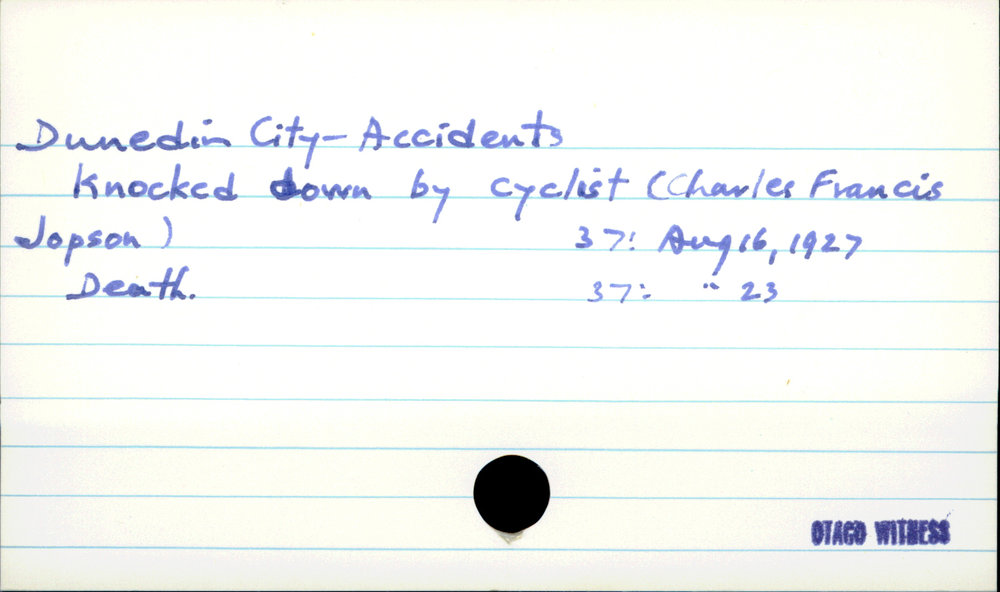 Dunedin City - Accidents
Knocked down by cyclist (Charles Francis
Jopson) 37: Aug 16, 1927
Death. 37: " 23
OTAGO WITNESS